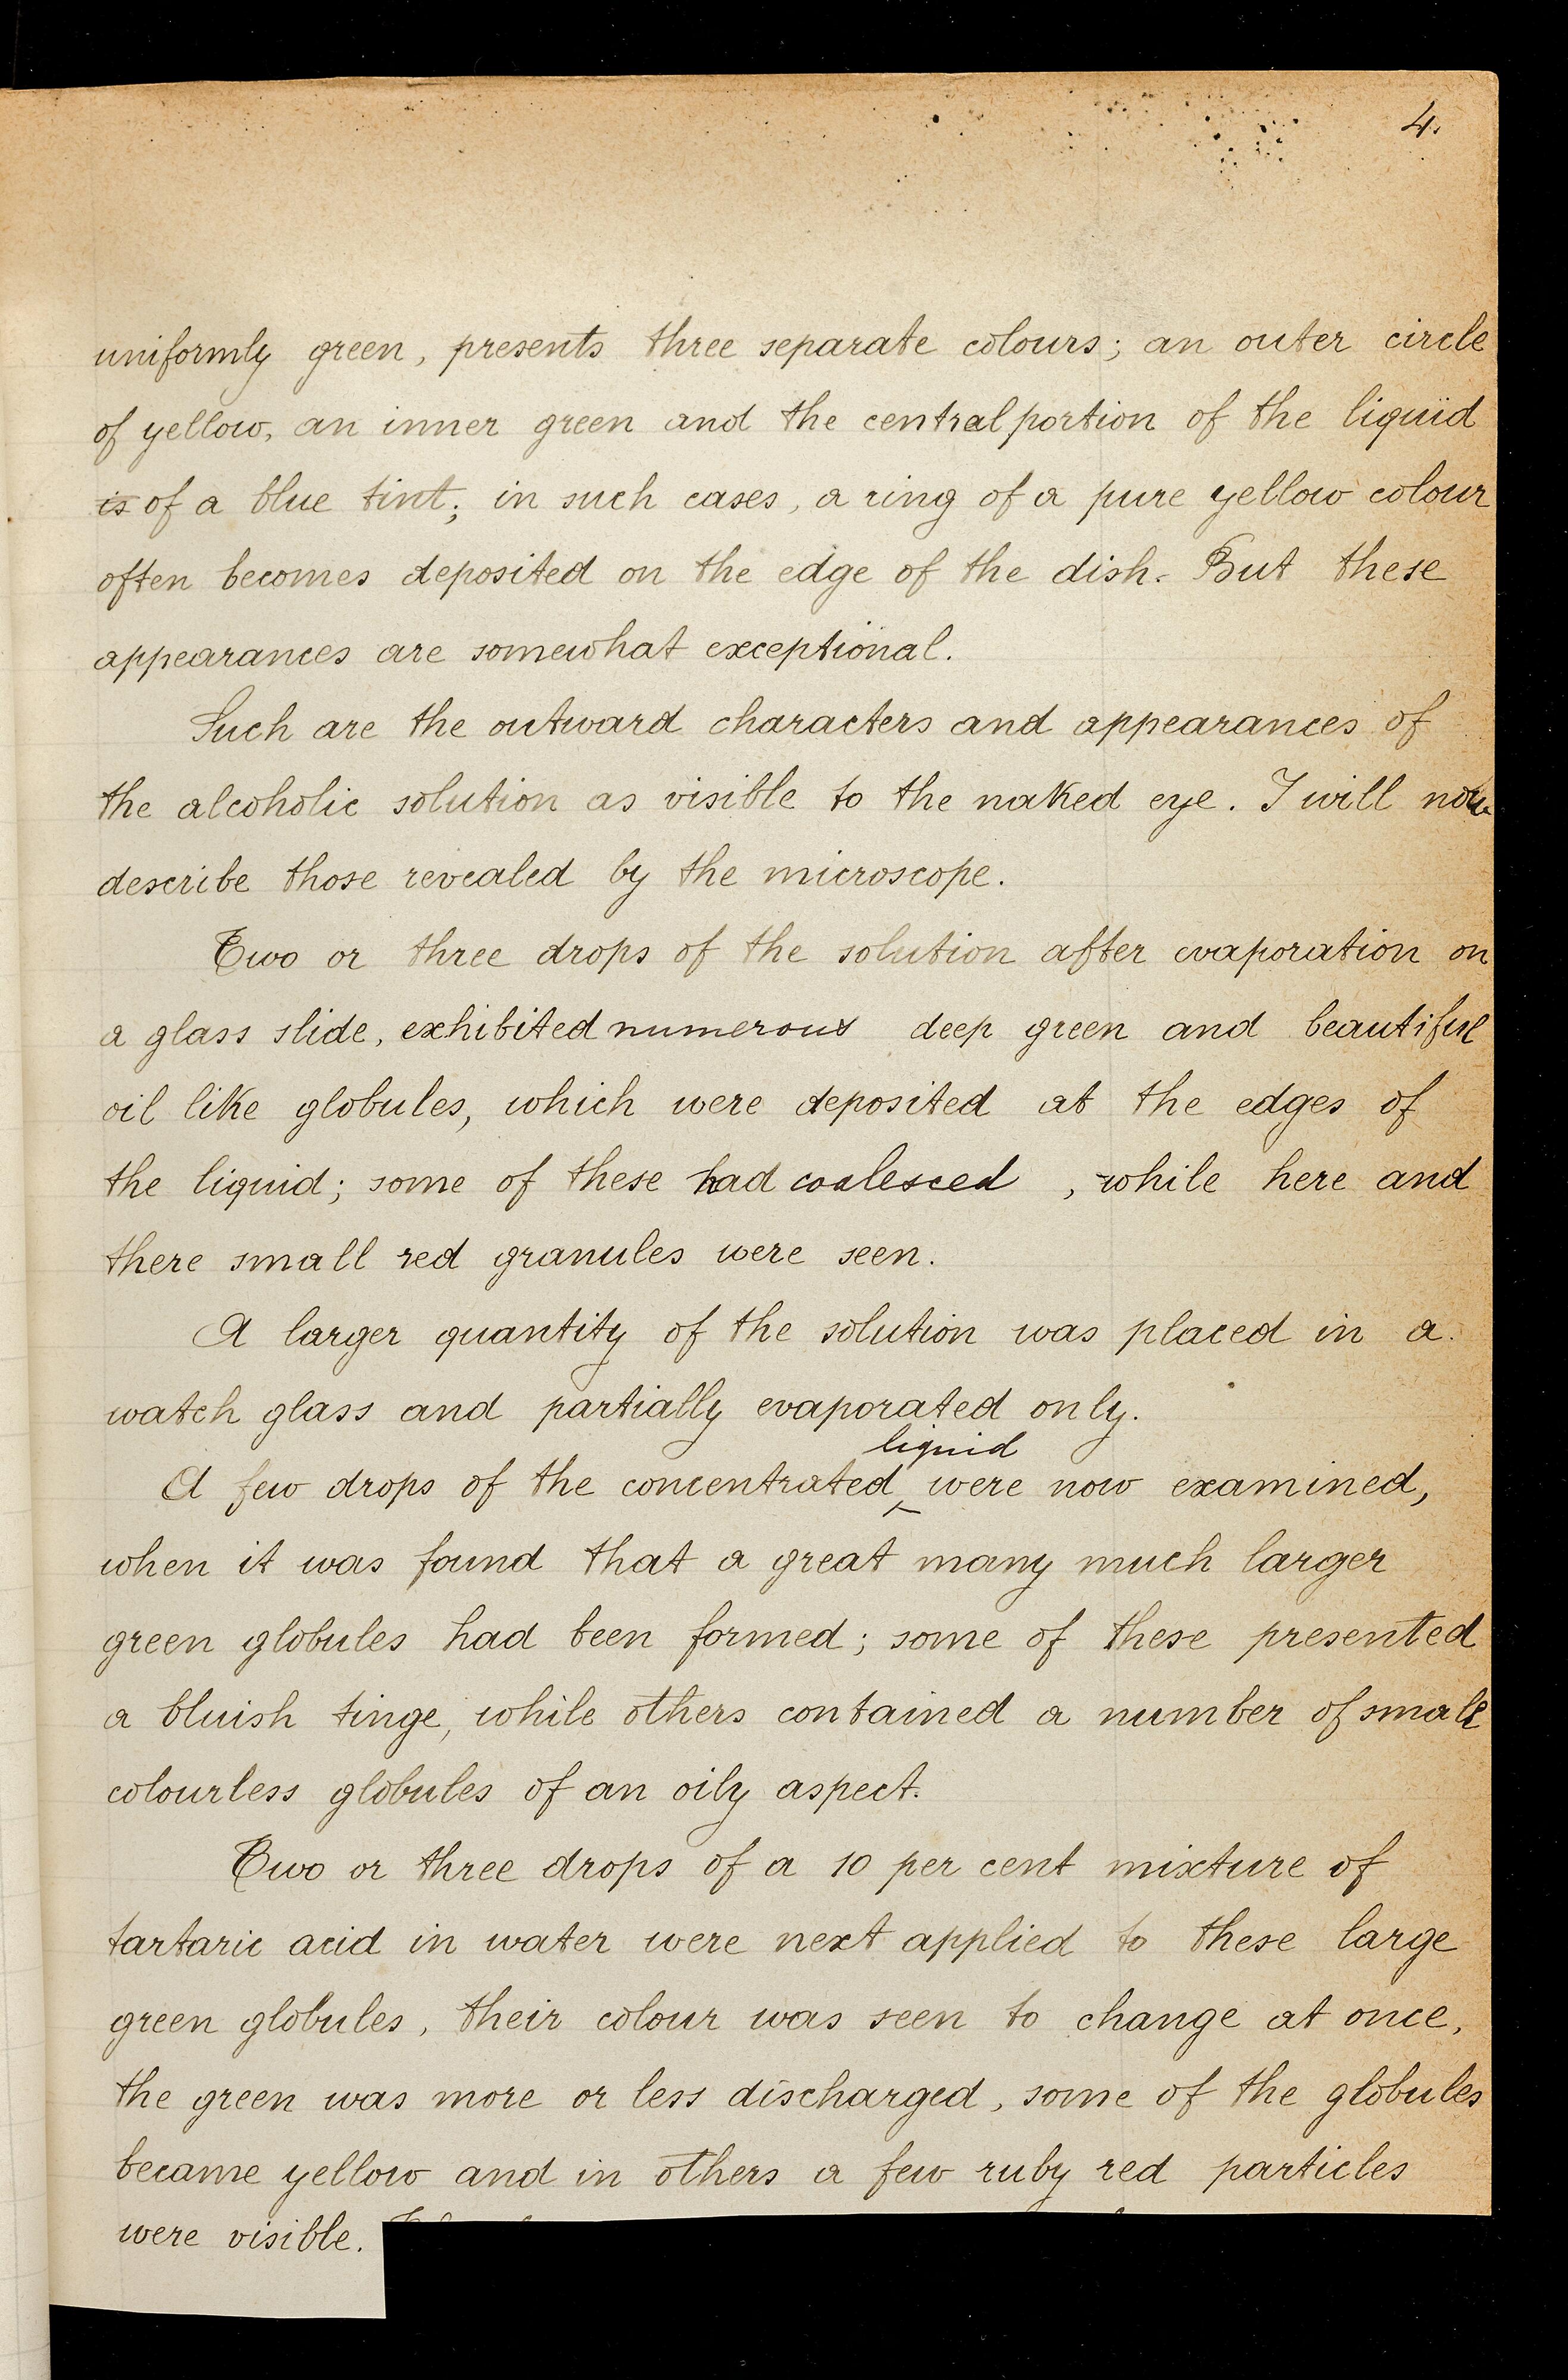 4.
uniformly green, presents three separate colours; an outer circle
of yellow, an inner green and the central portion of the liquid
is of a blue tint; in such cases, a ring of a pure yellow colour
often becomes deposited on the edge of the dish. But these
appearances are somewhat exceptional.
Such are the outward characters and appearances of
the alcoholic solution as visible to the naked eye. I will now
describe those revealed by the microscope.
Two or three drops of the solution after evaporation on
a glass slide, exhibited numerous deep green and beautiful
oil like globules, which were deposited at the edges of
the liquid; some of these had coalesced, while here and
there small red granules were seen.
A larger quantity of the solution was placed in a
watch glass and partially evaporated only.
liquid
A few drops of the concentrated were now examined,
when it was found that a great many much larger
green globules had been formed; some of these presented
a bluish tinge, while others contained a number of small
colourless globules of an oily aspect.
Two or three drops of a 10 per cent mixture of
tartaric acid in water were next applied to these large
green globules, their colour was seen to change at once,
the green was more or less discharged, some of the globules
became yellow and in others a few ruby red particles
were visible.